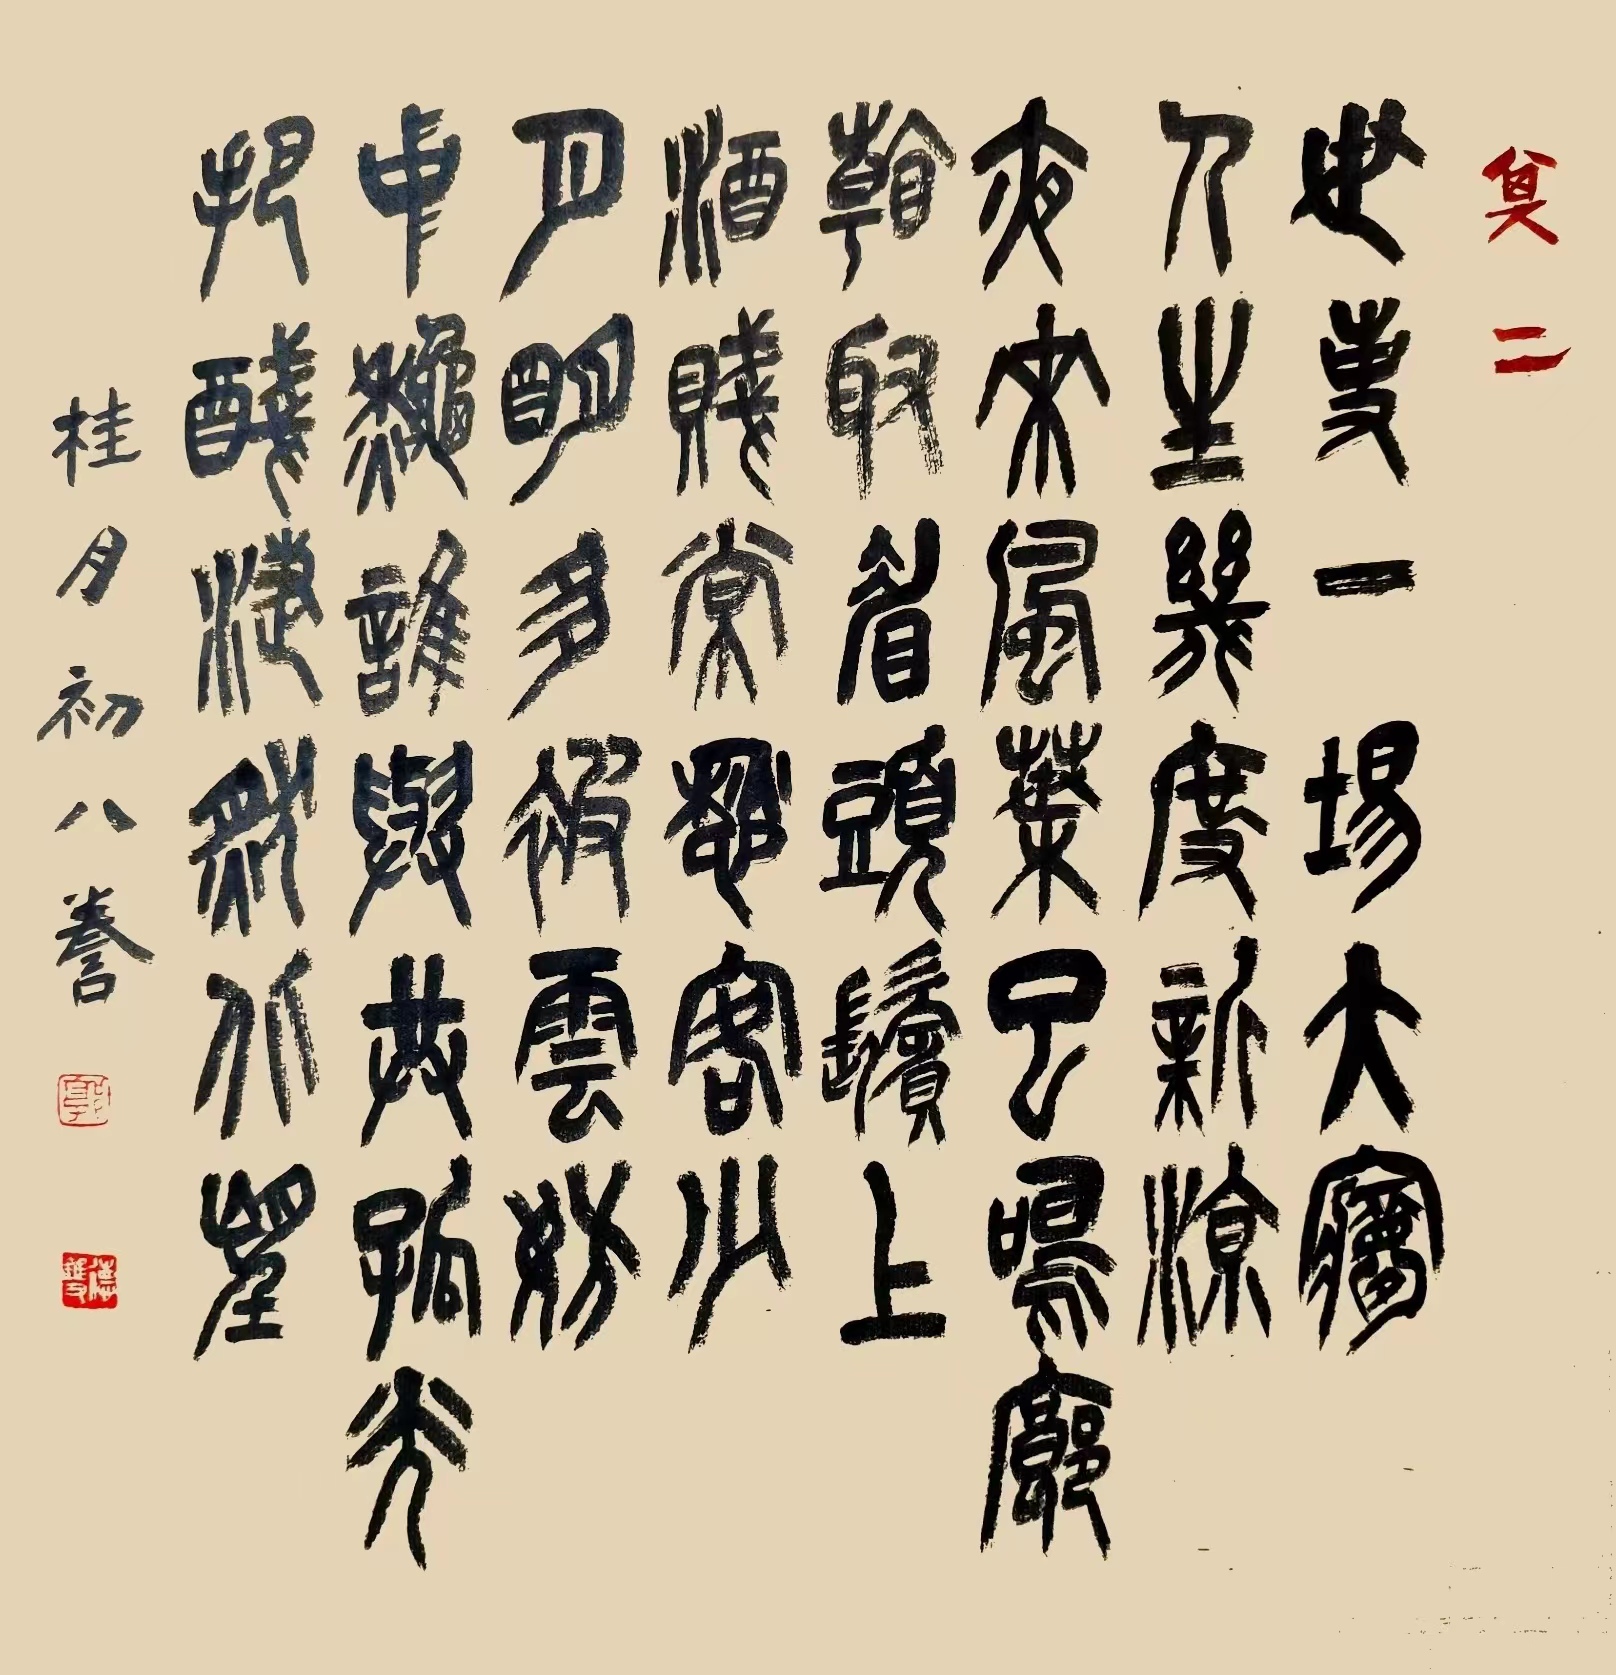 二
世事一場大夢
人生幾度新涼
夜來風葉已鳴廊
看取眉頭鬢上
酒賤常愁客少
月明多被雲妨
中秋誰與共孤光
把醆淒然北望
桂月初八誊
郭